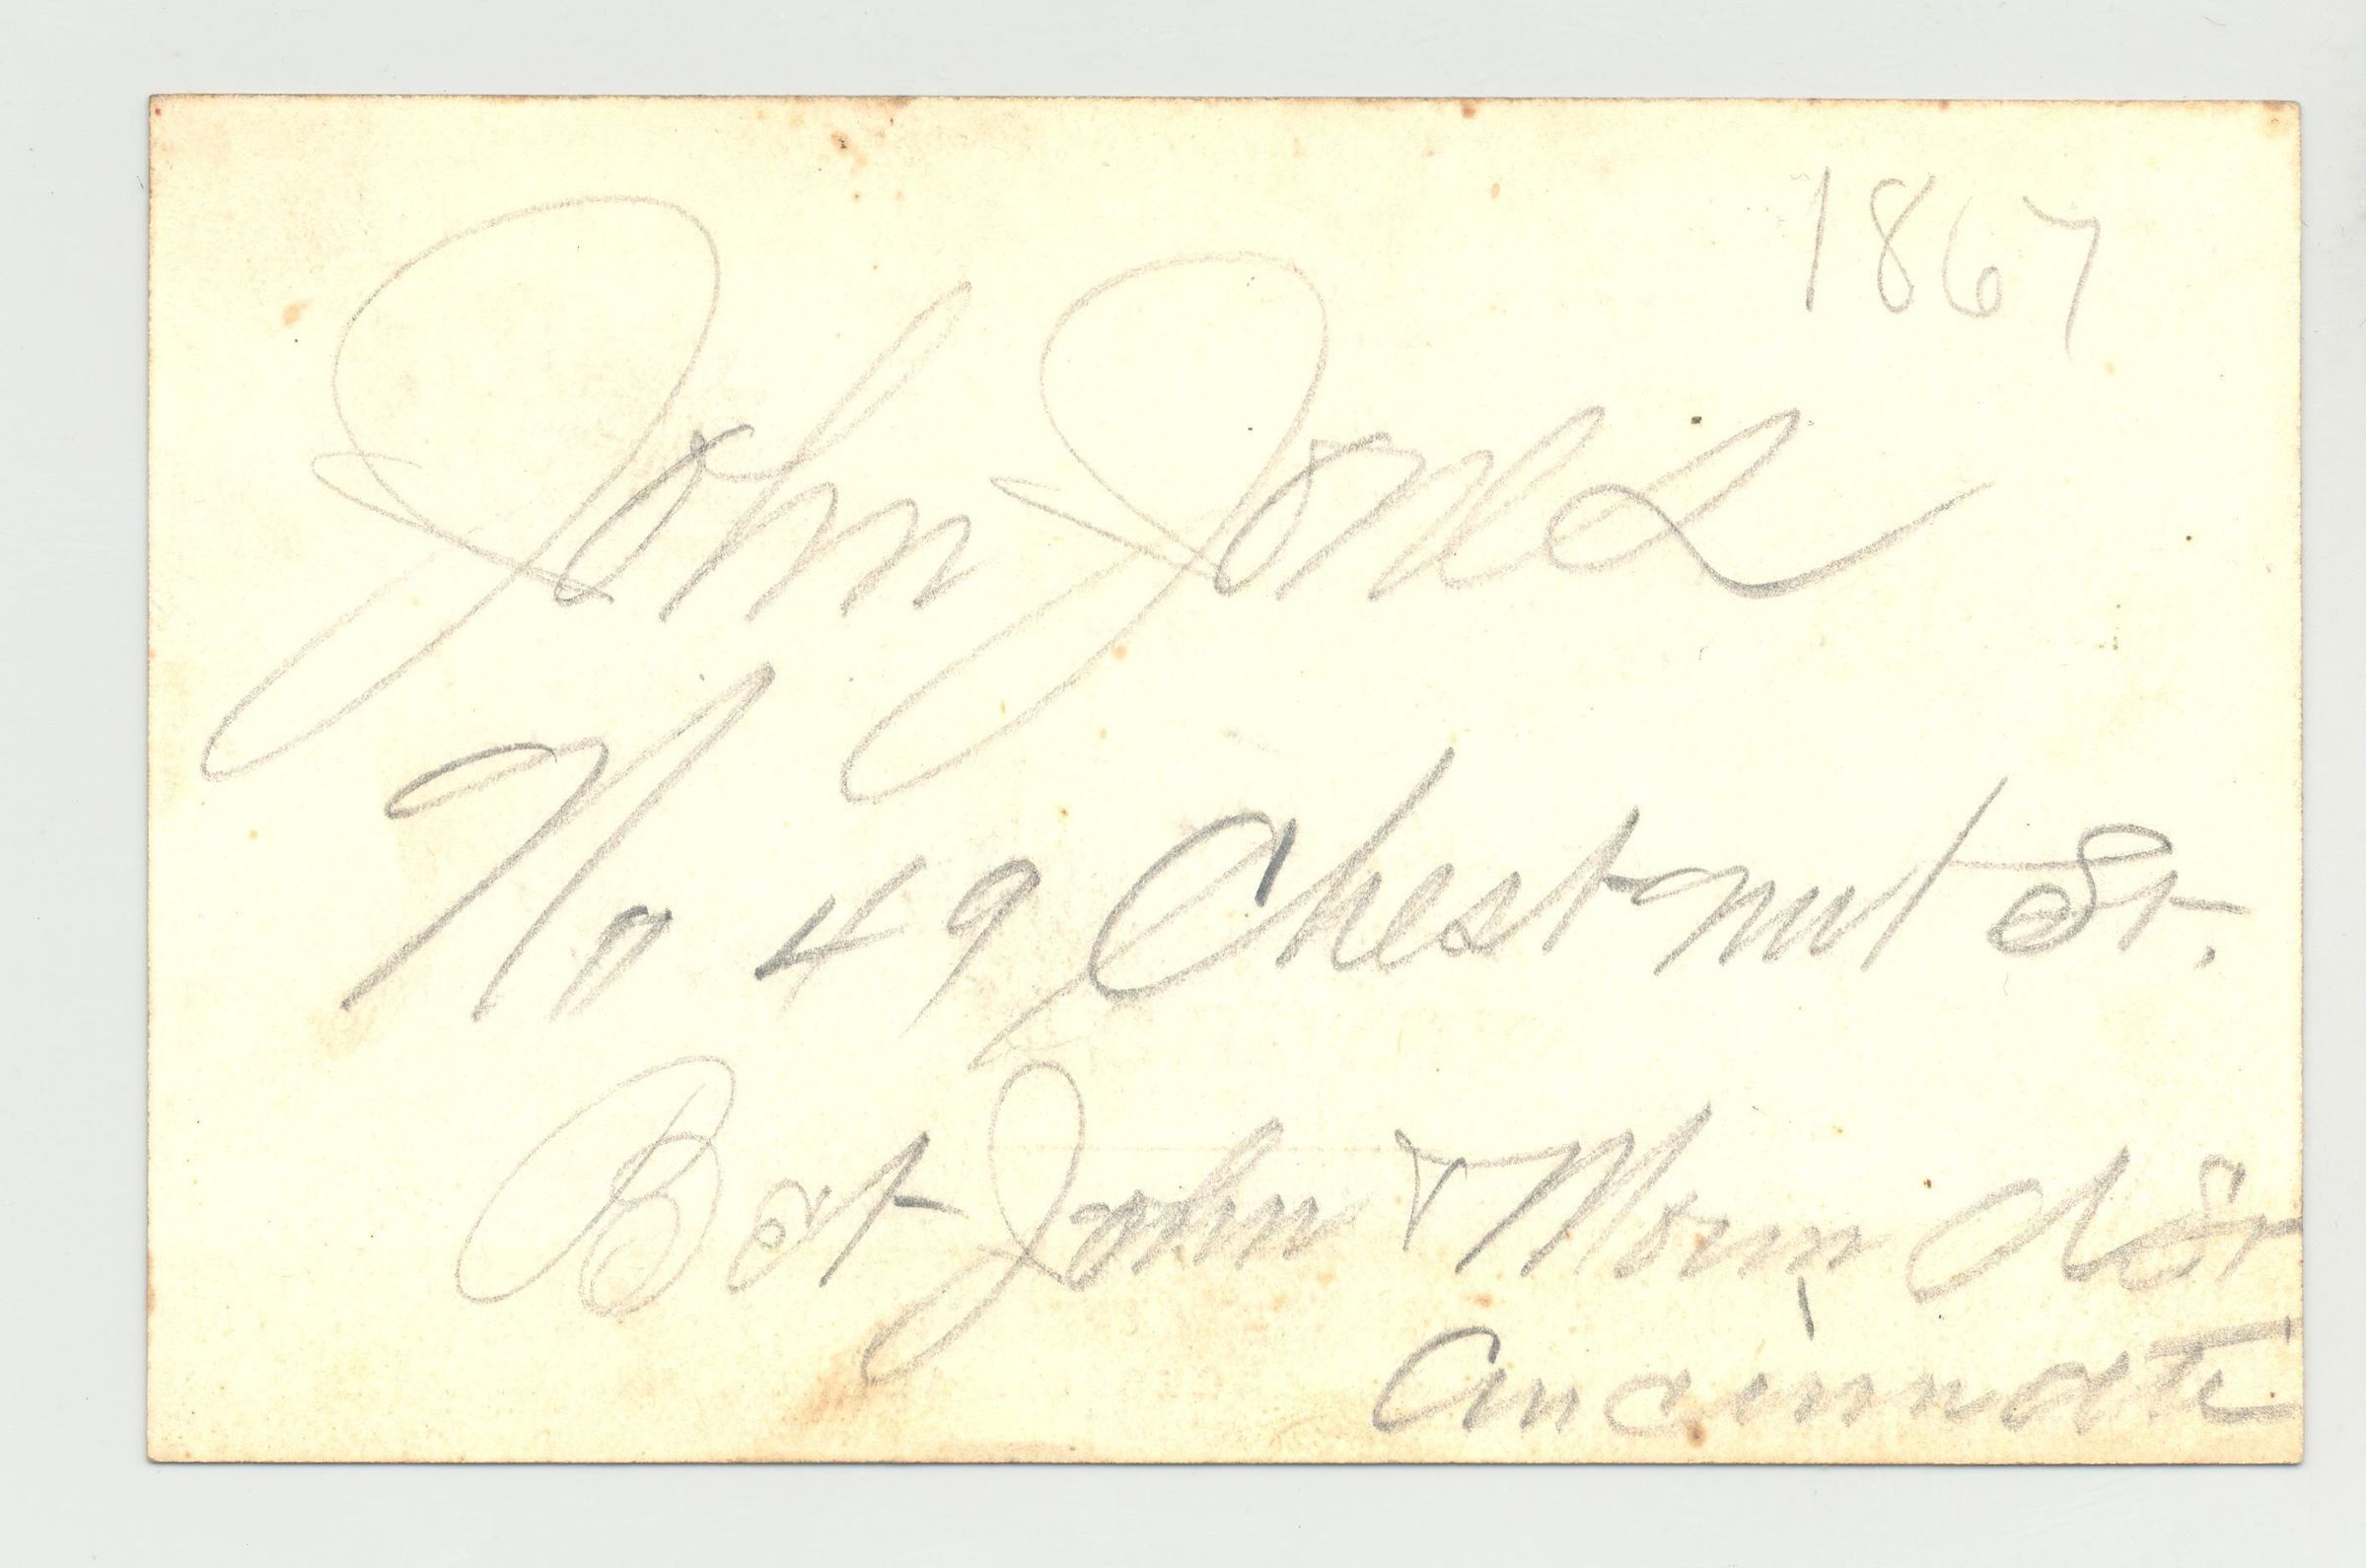 1867
John Jones
No 49 Chestnut St.
Bet John & Mound St
Cincinnati